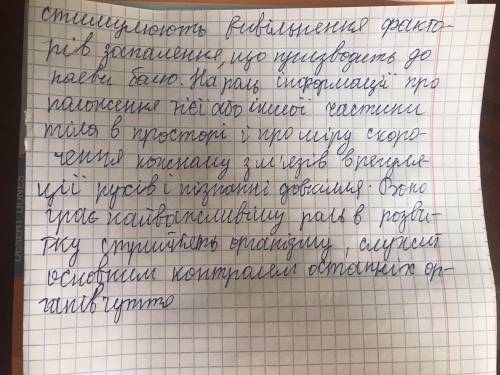 стимулюють вивільнення факто-
рів запалення, що призводить до
появи болю. На роль інформації про
положення тієї або іншої частини
тіла в просторі і про міру скоро-
чення кожному з м'язів в регуля-
ції рухів і пізнанні довкілля. Воно
грає найважливішу роль в розви-
тку стрийнять організму, служит
основним контролем останніх ор-
ганів чуття
DESERT DUNES